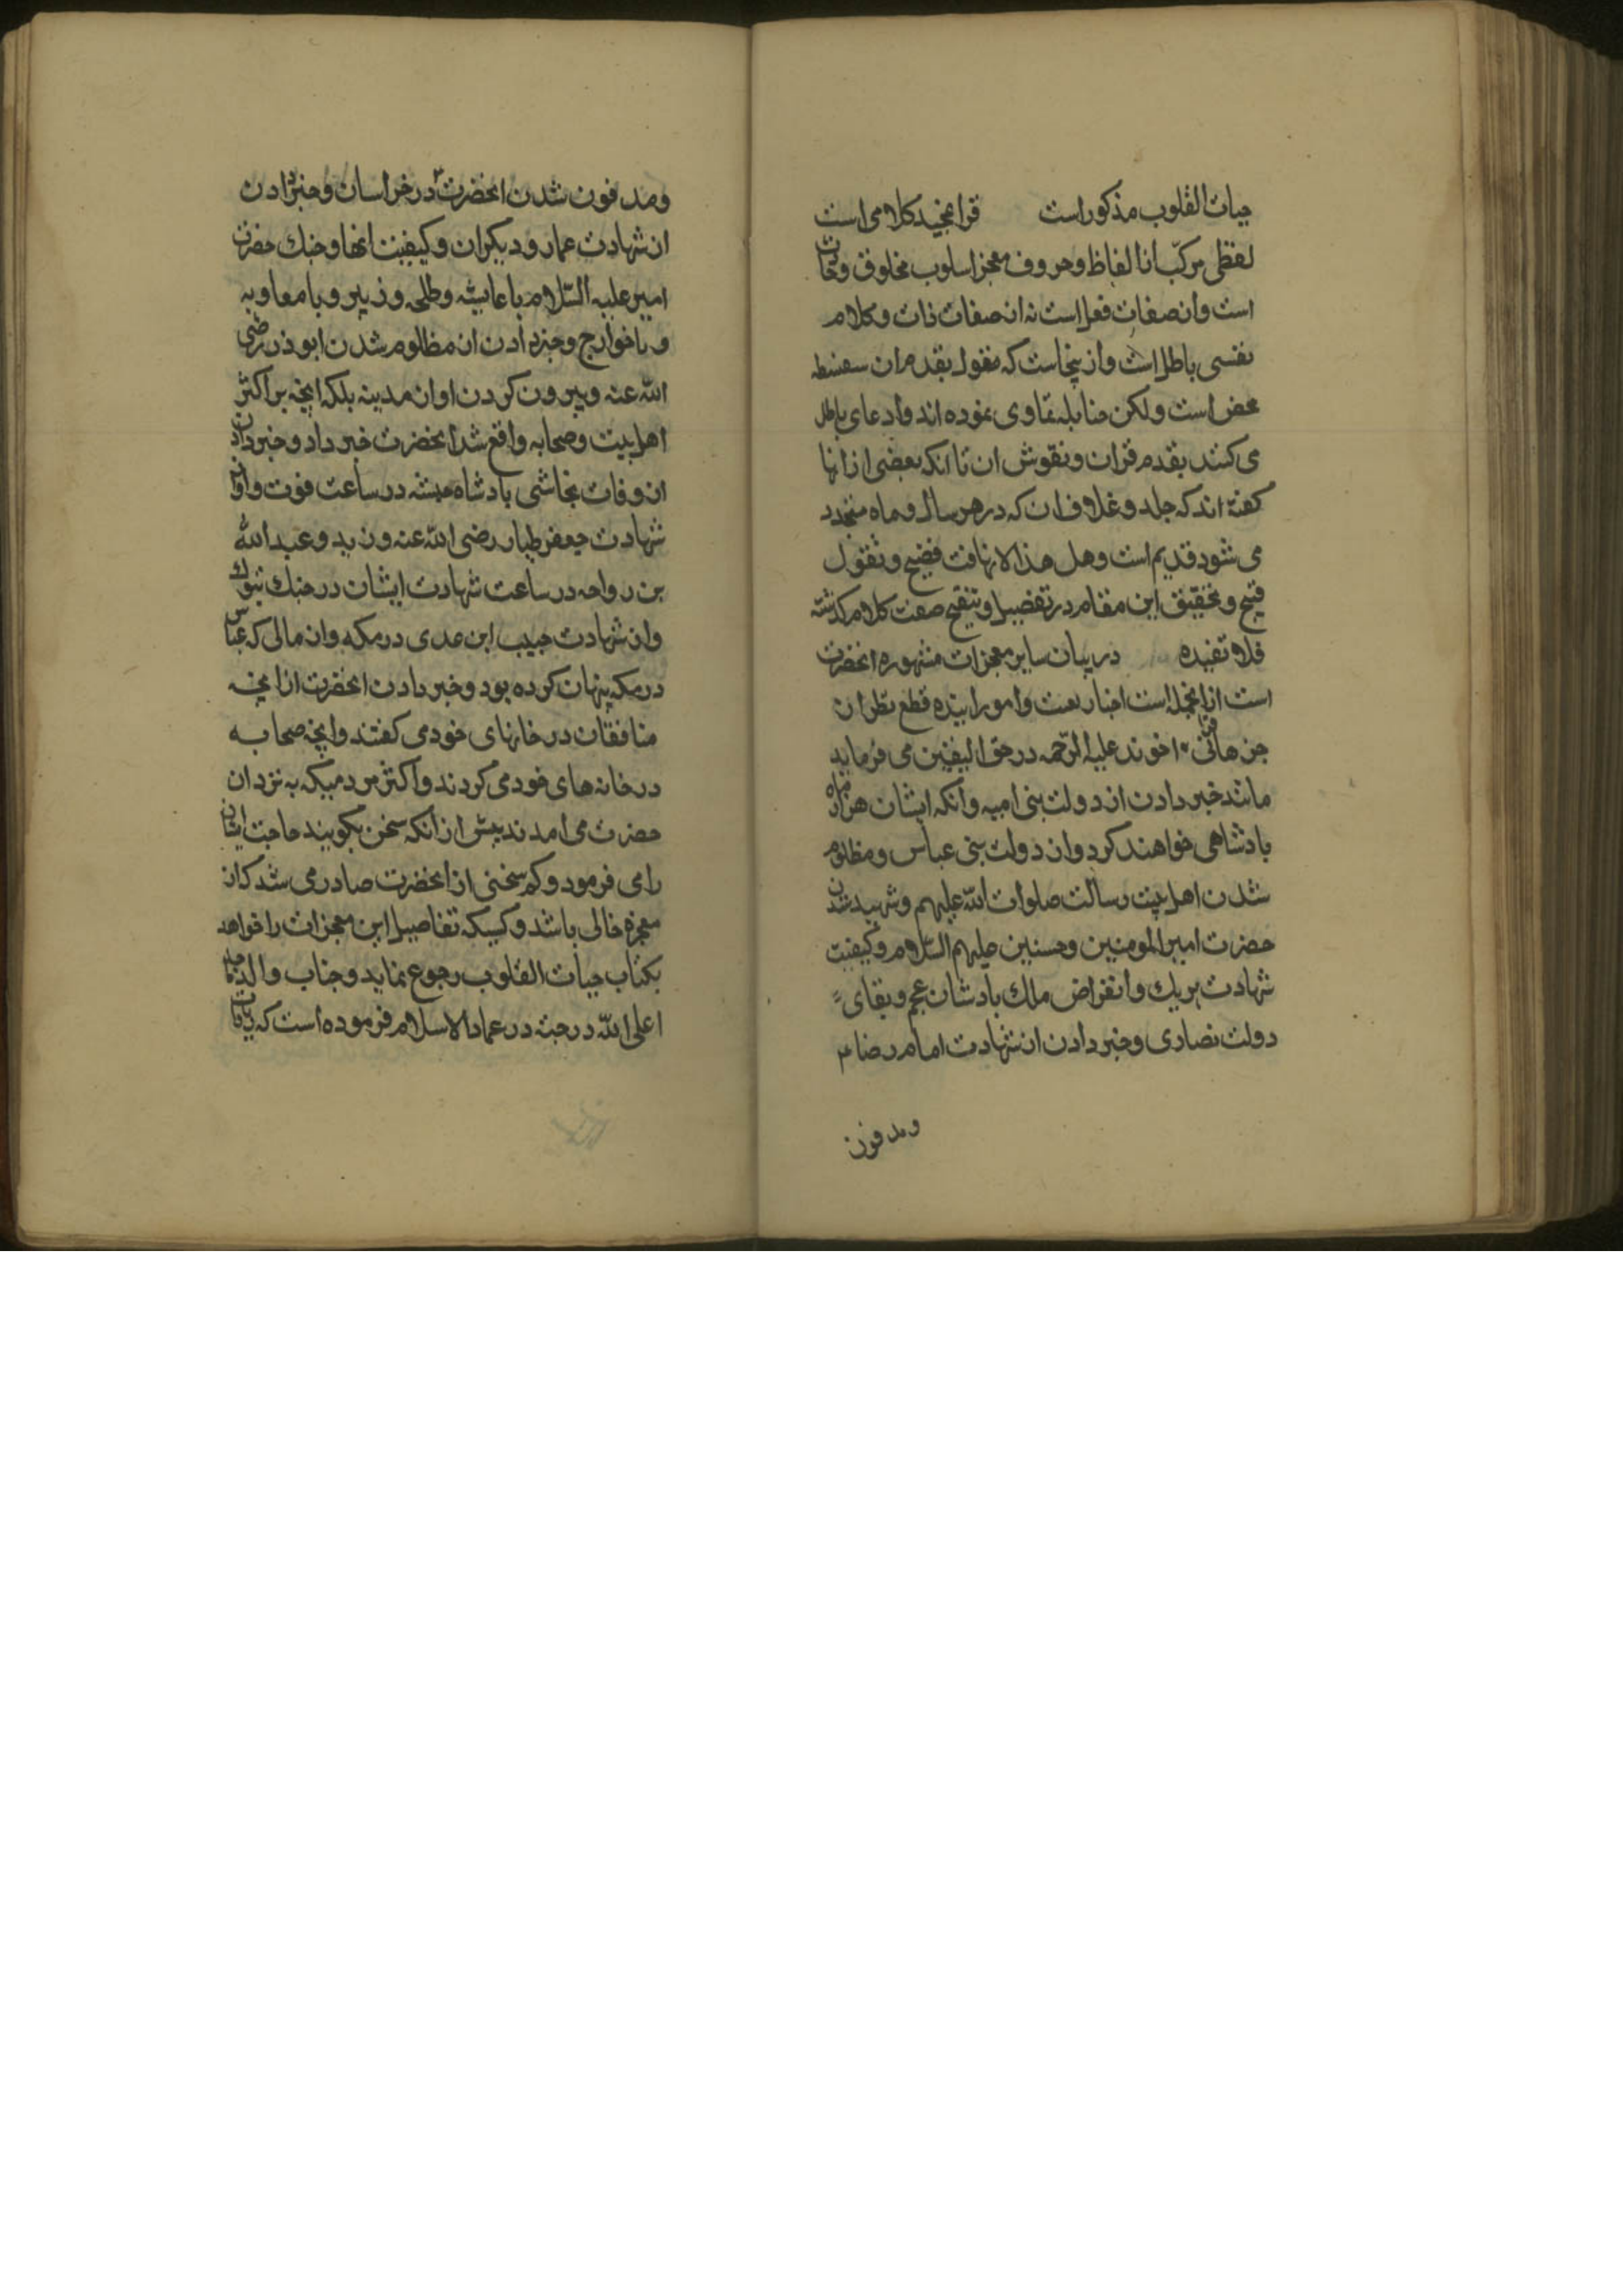 حیات القلوب مذکور است قران مجید کلامی است
لفظی مرکب از الفاظ و حروف معجز اسلوب مخلوق و حادث
است و از صفات فعل است نه از صفات ذات و کلام
نفسی باطل است و از ینجاست که مقول بقدم ان سفسطه
محض است ولکن حنابله تمادی نموده اند و ادعای باطل
می کنند بقدم قران و نقوش ان تا انکه بعضی از انها
کفته اند که جلد و غلاف ان که در هر سال و ماه متجدد
می شود قدیم است و هل هذا الا تهافت فضیح و تقول
قبیح و تحقیق این مقام در تفصیل و تنقیح صفت کلام کذشته
فلا نفیده در بیان سایر معجزات مشهوره انحضرت
است ازانجمله است اخبار بعث و امور اینده قطع نظر از
جز هائی اخوند علیه الرحمه در حق الیقین می فرماید
مانند خبر دادن از دولت بنی امیه و انکه ایشان هزار ماه
بادشاهی خواهند کرد و از دولت بنی عباس و مظلوم
شدن اهل بیت رسالت صلوات الله علیهم و شهید شدن
حضرت امیر المومنین و حسنین علیهم السلام و کیفیت
شهادت هریک و انقراض ملک بادشان عجم و بقای
دولت نصاری و خبر دادن از شهادت امام رضا ع
و مدفون
و مدفون شدن انحضرت در خراسان و خبر دادن
از شهادت عمار و دیکران و کیفیت انها و جنک حضرت
امیر علیه السلام با عایشه و طلحه و زبیر و با معاویه
و با خوارج و خبر دادن از مظلوم شدن ابوذر رضی
الله عنه و بیرون کردن او از مدینه بلکه انچه بر اکثر
اهل بیت و صحابه واقع شد انحضرت خبر داد و خبر دادن
از وفات نجاشی بادشاه حبشه در ساعت فوت و از
شهادت جعفر طیار رضی الله عنه و زید و عبد الله
بن رواحه در ساعت شهادت ایشان در جنک تبوک
و از شهادت حبیب ابن عدی در مکه و از مالی که عباس
در مکه پنهان کرده بود و خبر دادن انحضرت از انچه
منافقان در خانهای خود می کفتند و انچه صحابه
در خانه های خود می کردند و اکثر مردمیکه به نزد ان
حضرت می امدند پیش از انکه سخن بکویند حاجت ایشان
را می فرمود و کم سخنی از انحضرت صادر می شد که از
معجزه خالی باشد و کسیکه تفاصیل این معجزات را خواهد
بکتاب حیات القلوب رجوع نماید و جناب والد ماجد
اعلی الله درجته در عماد الاسلام فرموده است که